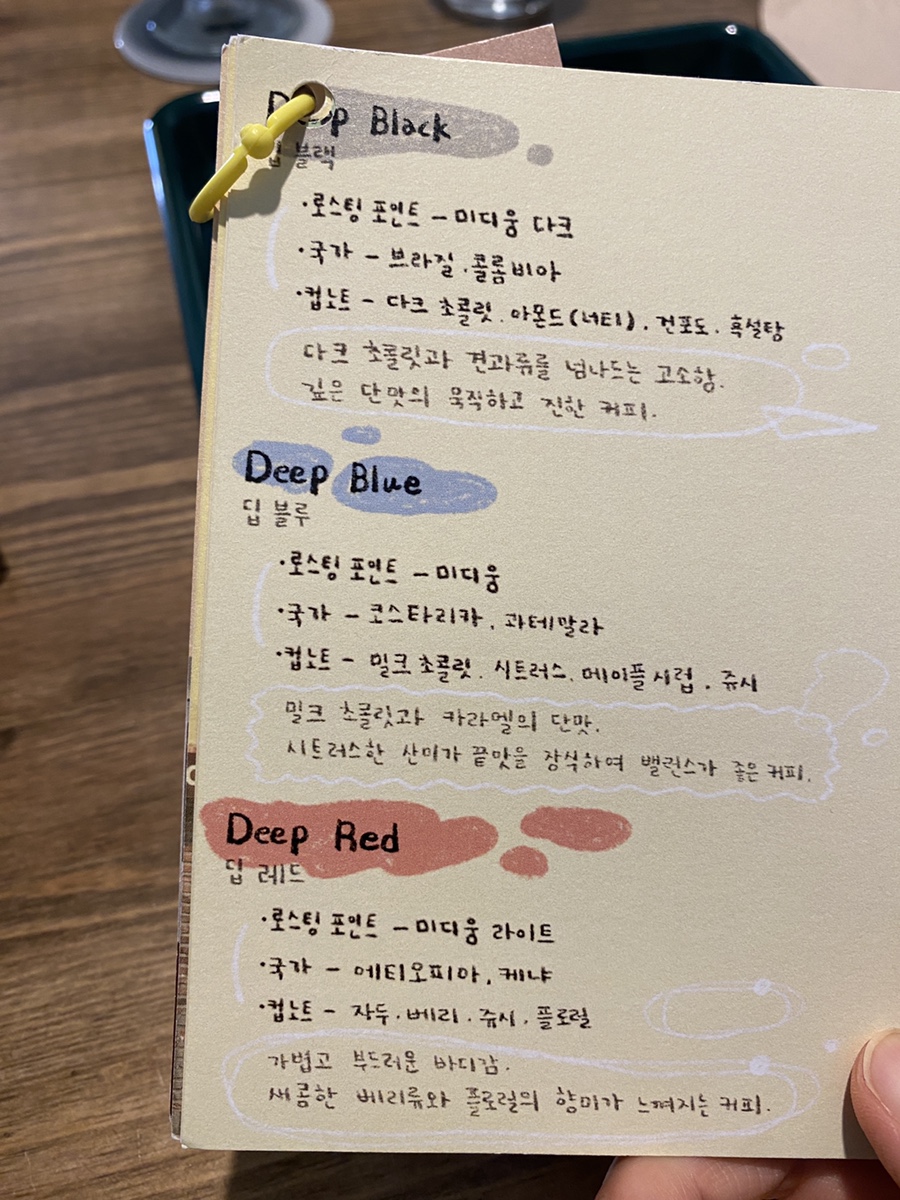 Deep Black
딥 블랙
·로스팅 포인트 - 미디움 다크
·국가 - 브라질, 콜롬비아
·컵노트 - 다크 초콜릿, 아몬드(너티), 건포도, 흑설탕
다크 초콜릿과 견과류를 넘나드는 고소함.
깊은 단맛의 묵직하고 진한 커피.
Deep Blue
딥 블루
·로스팅 포인트 - 미디움
·국가 - 코스타리카, 과테말라
·컵노트 - 밀크 초콜릿, 시트러스, 메이플 시럽, 쥬시
밀크 초콜릿과 카라멜의 단맛.
시트러스한 산미가 끝맛을 장식하여 밸런스가 좋은 커피.
Deep Red
딥 레드
·로스팅 포인트 - 미디움 라이트
·국가 - 에티오피아, 케냐
·컵노트 - 자두, 베리, 쥬시, 플로럴
가볍고 부드러운 바디감.
새콤한 베리류와 플로럴의 향미가 느껴지는 커피.